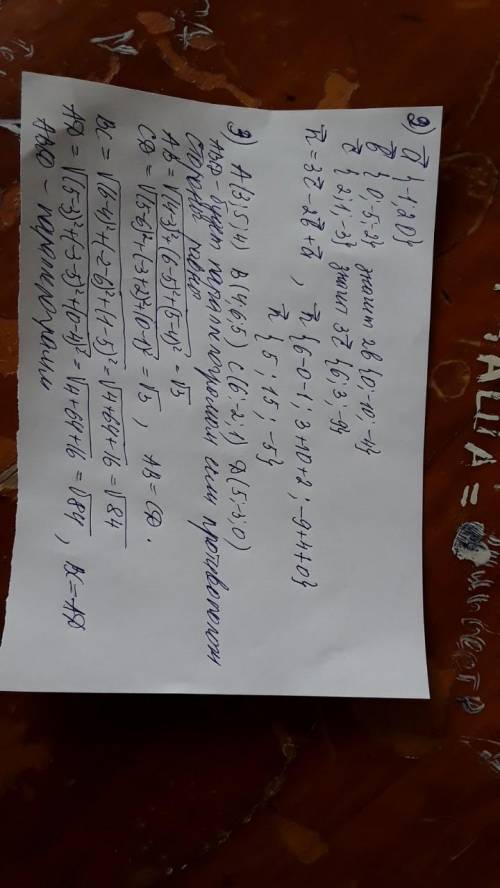 2) a⃗ {-1,2,0}
b⃗ {0;-5;-2} значит 2b {0;-10;-4}
c⃗ {2;1;-3} значит 3c⃗ {6;3;-9}
n⃗ = 3c⃗ - 2b⃗ + a⃗, n⃗ {6-0-1; 3+10+2; -9+4+0}
n⃗ {5; 15; -5}
3) A(3;5;4) B(4;6;5) C(6;-2;1) D(5;-3;0)
ABCD - будет параллелограмом если противополож
стороны равны
AB = √(4-3)²+(6-5)²+(5-4)² = √3
CD = √(5-6)²+(-3+2)²+(0-1)² = √3, AB = CD.
BC = √(6-4)²+(-2-6)²+(1-5)² = √4+64+16 = √84
AD = √(5-3)²+(-3-5)²+(0-4)² = √4+64+16 = √84, BC=AD
ABCD - параллелограмм